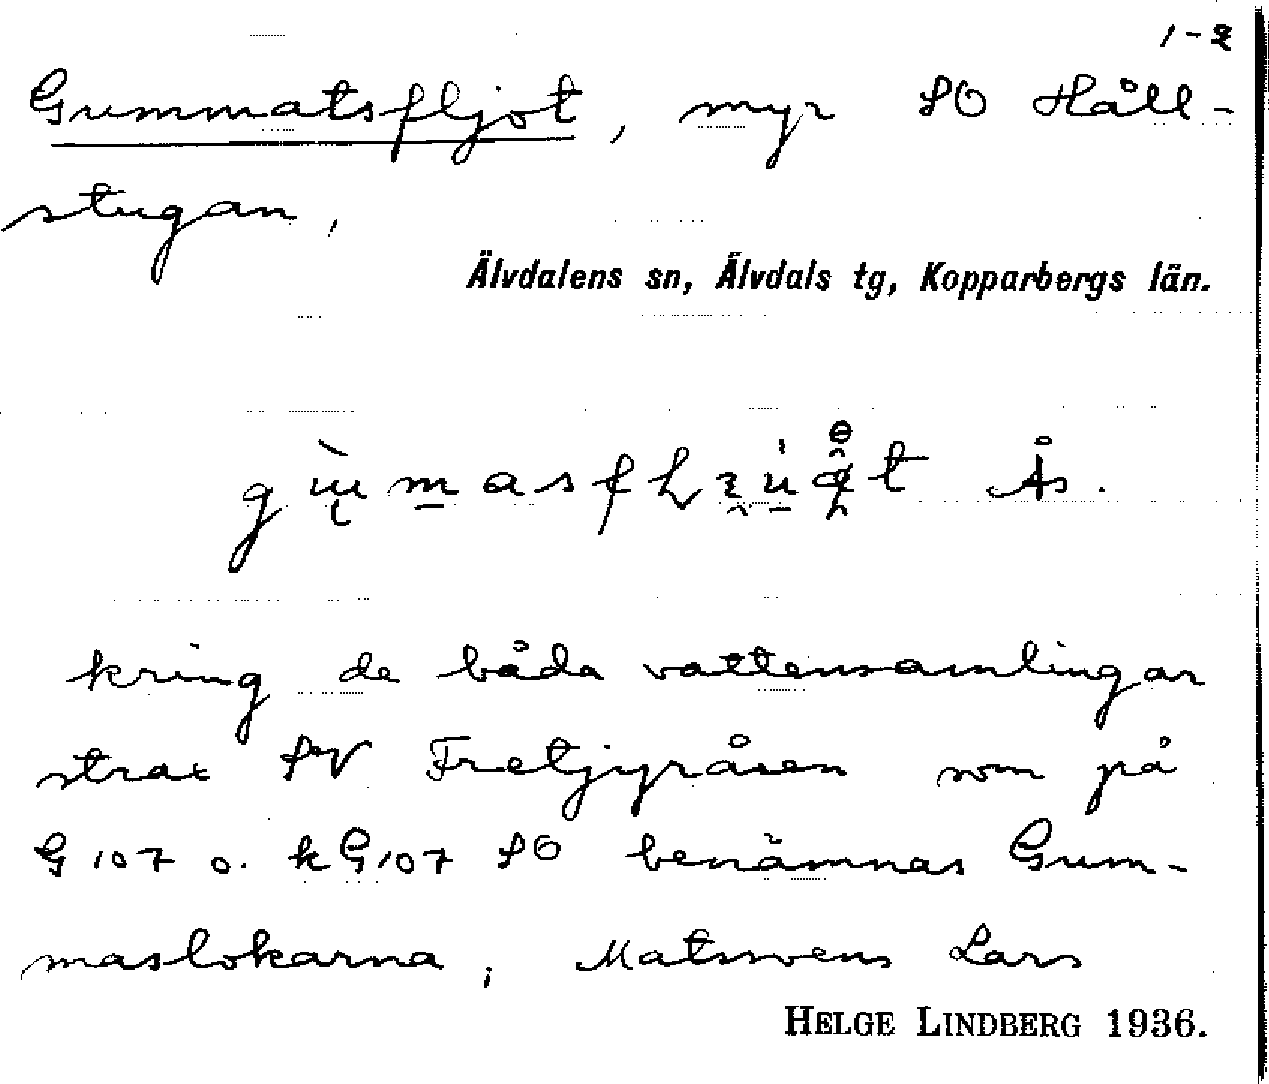 1-2
Gummatsfljot, myr SO Håll-
stugan,
Älvdalens sn, Älvdals tg, Kopparbergs län.
Ås.
kring de båda vattensamlingar
strax SV Fretjyråsen som på
G 107 o. kG107 SO benämnas Gum-
maslokarna; Matsvens Lars
HELGE LINDBERG 1936.